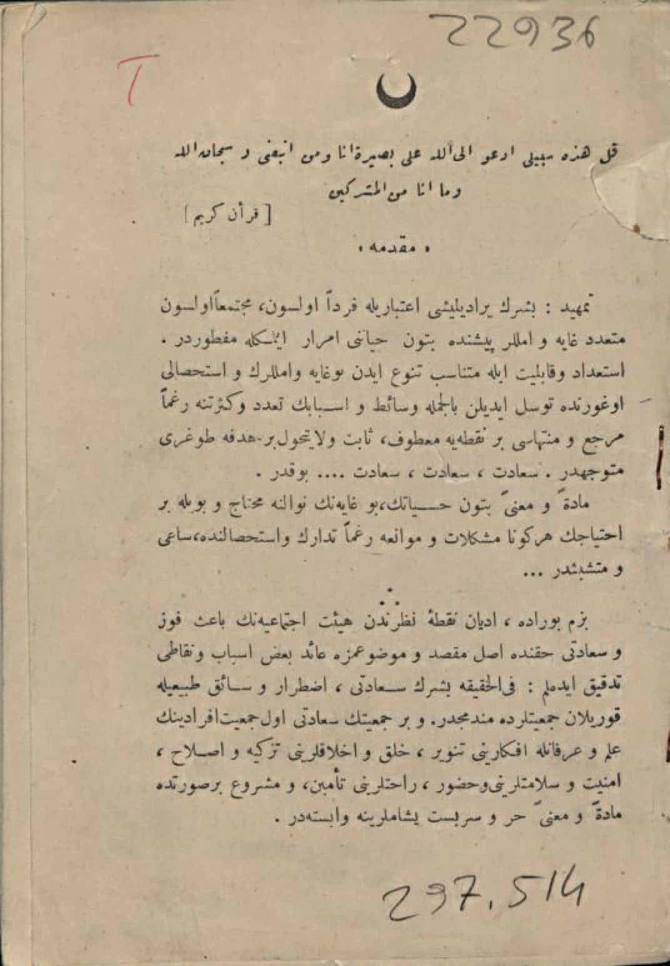 22936
T
قل هذه سبيلى ادعو الى الله على بصيرة انا ومن اتبعنى و سبحان الله
وما انا من المشركين
[قرآن كريم]
« مقدمه »
تمهيد : بشرك يراديليشى اعتباريله فرداً اولسون، مجتمعاً اولسون
متعدد غايه و امللر پيشنده بتون حياتنى امرار ايتمكله مفطوردر .
استعداد وقابليت ايله متناسب تنوع ايدن بوغايه واملارك و استحصالى
اوغورنده توسل ايديلن بالجمله وسائط و اسبابك تعدد وكثرتنه رغماً
مرجع و منتهاسى بر نقطه‌يه معطوف، ثابت ولايتحول بر هدفه طوغرى
متوجهدر . سعادت ، سعادت ، سعادت .... بوقدر .
مادةً و معنىً بتون حسياتك، بو غايه‌نك نوالنه محتاج و بويله بر
احتياجك هركونا مشكلات و موانعه رغماً تدارك واستحصالنده، ساعى
و متشبثدر ...
بزم بوراده ، اديان نقطۀ نظرندن هيئت اجتماعيه‌نك باعث فوز
و سعادتى حقنده اصل مقصد و موضوعمزه عائد بعض اسباب ونقاطى
تدقيق ايده‌لم : فى‌الحقيقه بشرك سعادتى ، اضطرار و سائق طبيعيله
قوريلان جمعيتلرده مندمجدر. و بر جمعيتك سعادتى اول جمعيت افرادينك
علم و عرفانله افكارينى تنوير ، خلق و اخلاقلرينى تزكيه و اصلاح ،
امنيت و سلامتلرينى وحضور ، راحتلرينى تأمين، و مشروع بر صورتده
مادةً و معنىً حر و سربست يشاملرينه وابسته‌در .
297.514